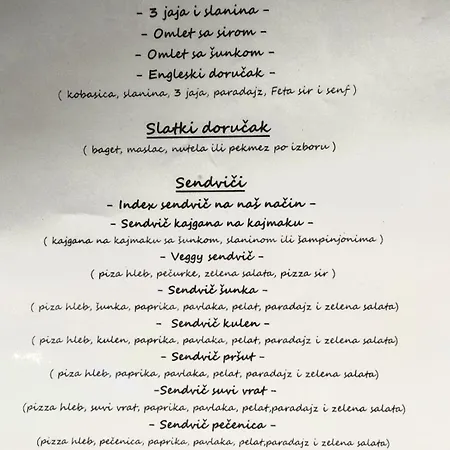 - 3 jaja i slanina -
- Omlet sa sirom -
- Omlet sa šunkom -
- Engleski doručak -
( kobasica, slanina, 3 jaja, paradajz, Feta sir i senf )
Slatki doručak
( baget, maslac, nutela ili pekmez po izboru )
Sendviči
- Index sendvič na naš način -
- Sendvič kajgana na kajmaku -
( kajgana na kajmaku sa šunkom, slaninom ili šampinjonima )
- Veggy sendvič -
( piza hleb, pečurke, zelena salata, pizza sir )
- Sendvič šunka -
( piza hleb, šunka, paprika, pavlaka, pelat, paradajz i zelena salata)
- Sendvič kulen -
( piza hleb, kulen, paprika, pavlaka, pelat, paradajz i zelena salata)
- Sendvič pršut -
( piza hleb, paprika, pavlaka, pelat, paradajz i zelena salata)
-Sendvič suvi vrat -
(pizza hleb, suvi vrat, paprika, pavlaka, pelat,paradajz i zelena salata)
- Sendvič pečenica -
(piza hleb, pečenica, paprika, pavlaka, pelat,paradajz i zelena salata)